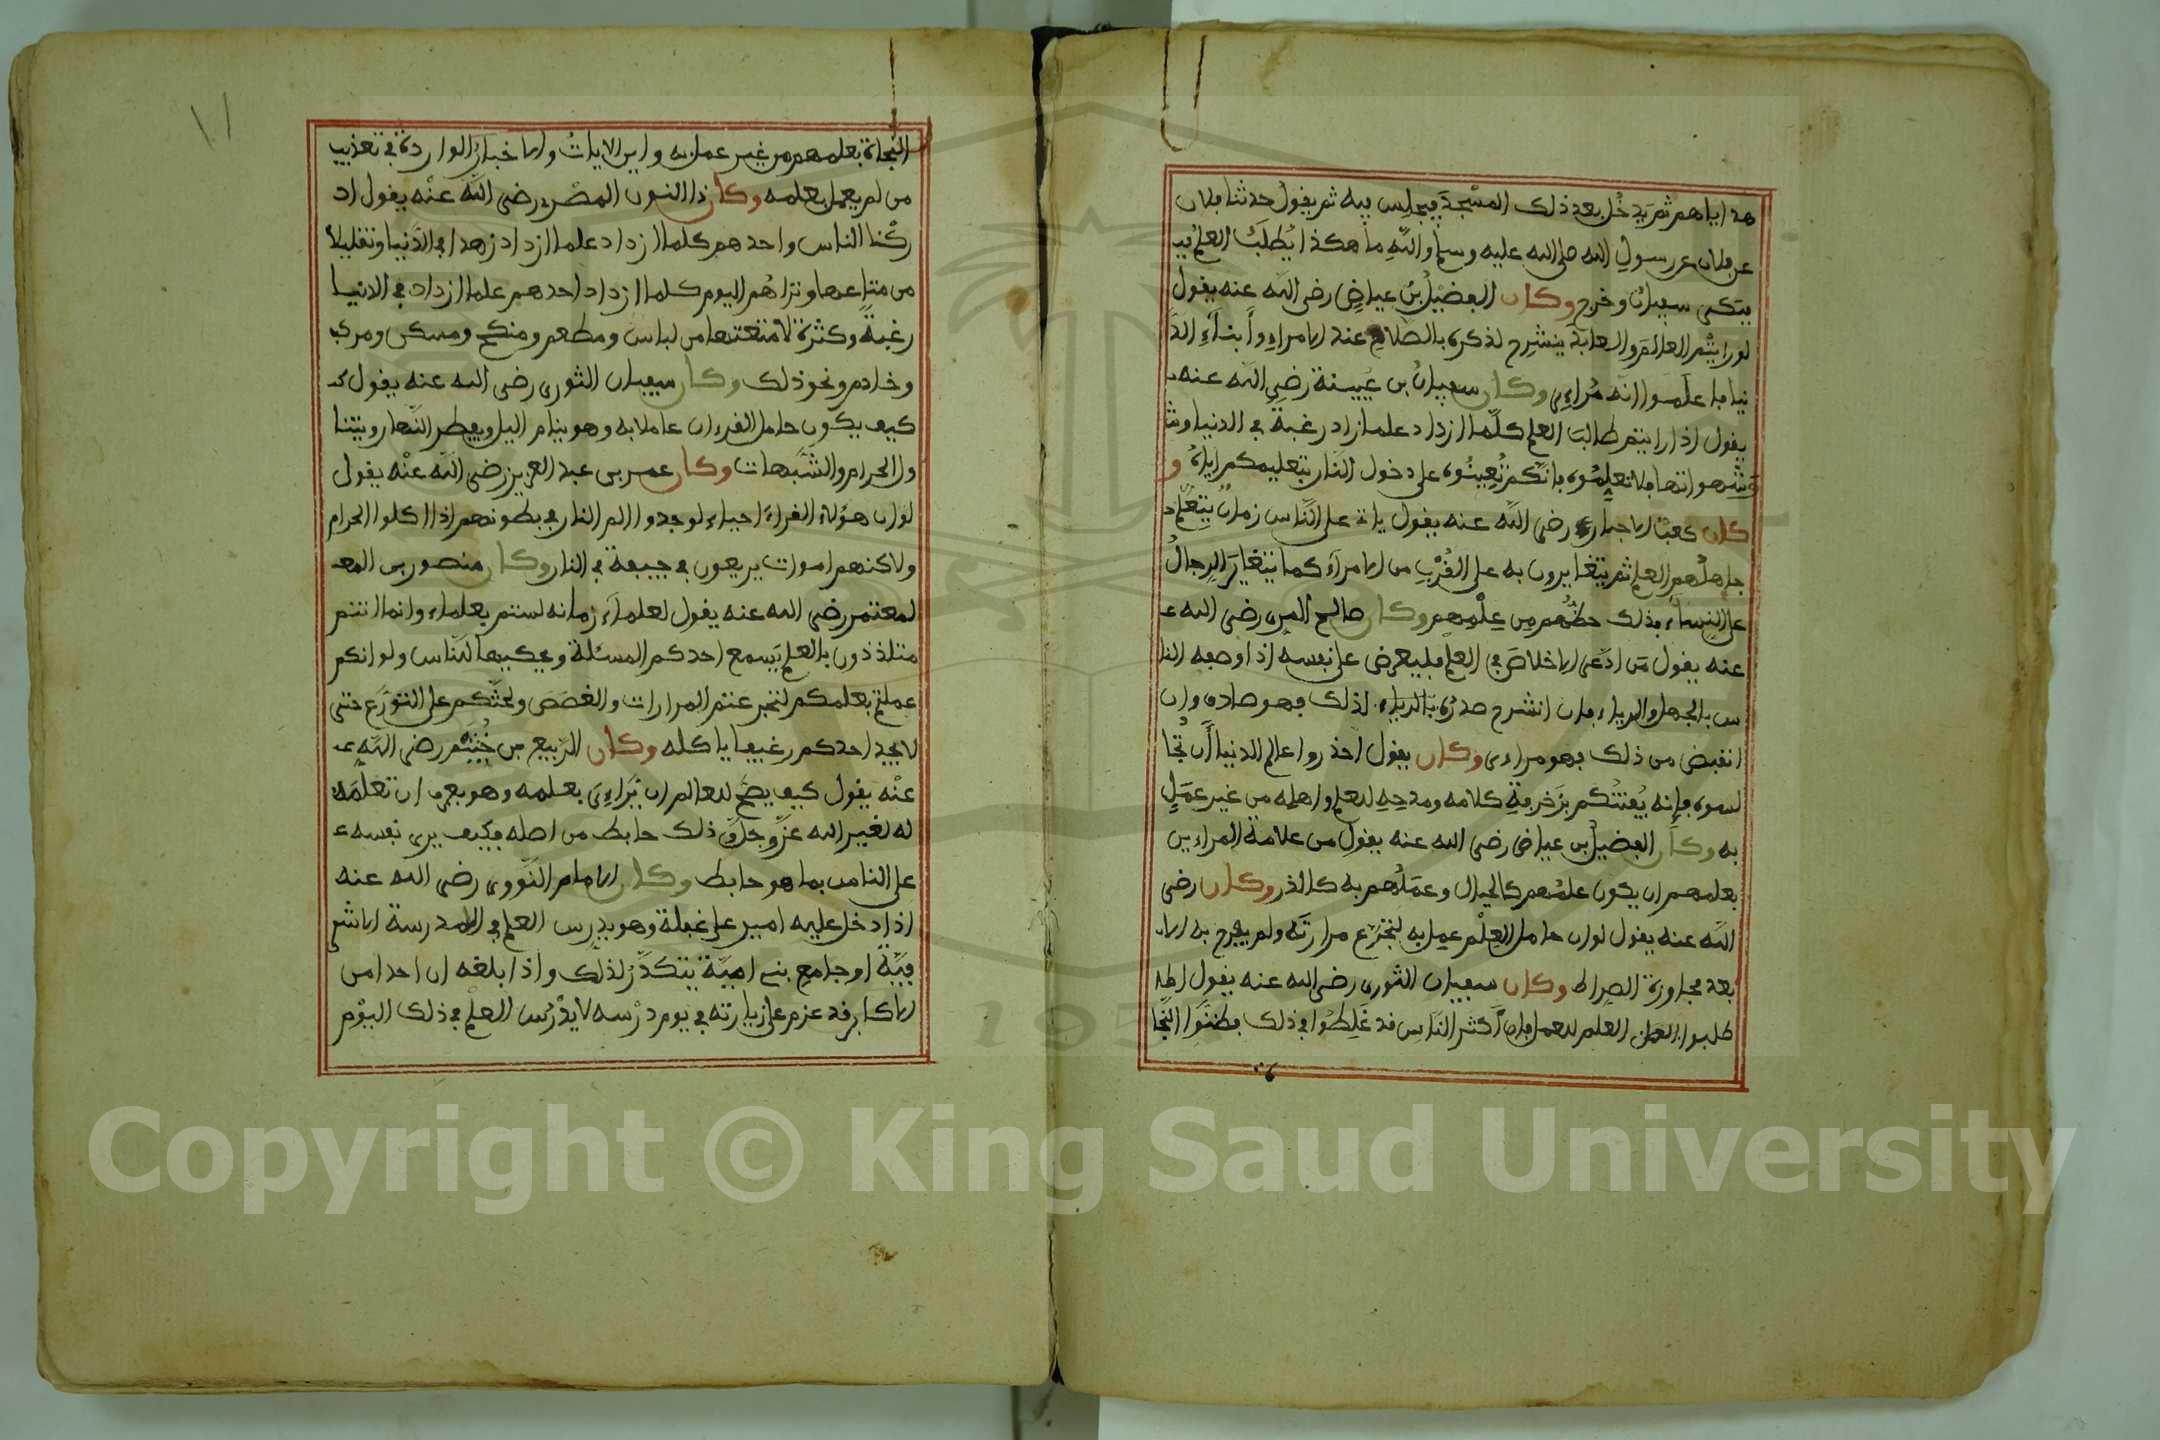 هذا اياهم ثم يدخل بعد ذلك المسجد فيجلس فيه ثم يقول حدثنا فلان
عن فلان عن رسول الله صلى الله عليه وسلم والله ما هكذا يطلب العلم فيـ
يبكى سفيان وخرج وكان الفضيل بن عياض رضى الله عنه يقول
لو رايتم العالم والعابد ينشرح لذكره بالصلاح عند الامراء وأبناء الد
نيا فاعلموا انه مراءى وكان سفيان بن عيينة رضى الله عنه
يقول اذا رايتم طالب العلم كلما ازداد علما زاد رغبة في الدنيا وشـ
وشهواتها فلا تعلموه فانكم تعينوه على دخول النار بتعليمكم اياه و
كان كعب الاحبار رضى الله عنه يقول ياتى على الناس زمان يتعلم
جاهلهم العلم ثم يتغايرون به على القرب من الامراء كما يتغاير الرجال
على النساء فذلك حظهم من علمهم وكان صالح المرى رضى الله عـ
عنه يقول من ادعى الاخلاص في العلم فليعرض على نفسه اذا وصفه النا
س بالجهل والرياء فان انشرح صدره بالرياء لذلك فهو صادق وان
انقبض من ذلك فهو مراءى وكان يقول احذروا عالم الدنيا أن تجا
لسوه فإنه يفتنكم بزخرفة كلامه ومدحه للعلم واهله من غير عمل
به وكان الفضيل بن عياض رضى الله عنه يقول من علامة المراءين
بعلمهم ان يكون علمهم كالجبال وعملهم به كالذر وكان رضى
الله عنه يقول لو ان حامل العلم عمل به لتجرع مرارته ولم يفرح به الا
بعد مجاوزة الصراط وكان سفيان الثورى رضى الله عنه يقول
طلبوا العلم للعمل فان أكثر الناس قد غلطوا في ذلك فظنوا النجا
١١
النجاة بعلمهم من غير عمل به واين الايات والاخبار الواردة في تعذيب
من لم يعمل بعلمه وكان ذا النون المصرى رضى الله عنه يقول اد
ركنا الناس واحدهم كلما ازداد علما ازداد زهدا في الدنيا وتقليلا
من متاعها ونراهم اليوم كلما ازداد احدهم علما ازداد في الدنيا
رغبة وكثرة لامتعتها من لباس ومطعم ومنكح ومسكن ومركب
وخادم ونحو ذلك وكان سفيان الثورى رضى الله عنه يقول
كيف يكون حامل القرءان عاملا به وهو ينام اليل ويفطر النهار ويتنا
ول الحرام والشبهات وكان عمر بن عبد العزيز رضى الله عنه يقول
لو ان هؤلاء القراء احياء لوجدوا الم النار في بطونهم اذا اكلوا الحرام
ولاكنهم اموات يرتعون في جيفة في النار وكان منصور بن المعـ
لمعتمر رضى الله عنه يقول لعلماء زمانه لستم بعلماء وانما انتم
متلذذون بالعلم يسمع احدكم المسئلة ويحكيها للناس ولو انكم
عملتم بعلمكم لتجرعتم المرارات والغصص ولحثكم على التورع حتى
لا يجد احدكم رغيفا ياكله وكان الربيع بن خثيم رضى الله عـ
عنه يقول كيف يصح للعالم ان يراءى بعلمه وهو يعرف ان تعلمه
له لغير الله عز وجل وذلك حابط من اصله فكيف يرى نفسه عـ
على الناس بما هو حابط وكان الامام النووى رضى الله عنه
اذا دخل عليه امير على غفلة وهو يدرس العلم في المدرسة الاشر
فية او جامع بنى امية يتكدر لذلك واذا بلغه ان احدا من
الاكابر قد عزم على زيارته في يوم درسه لا يدرس العلم في ذلك اليوم
Copyright © King Saud University